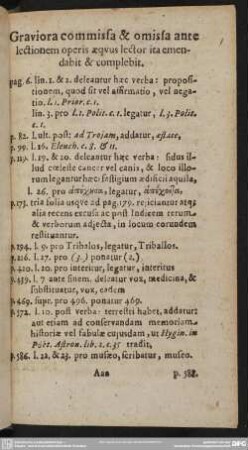 Graviora commissa & omissa ante
lectionem operis æqvus lector ita emen-
dabit & complebit.
pag. 6. lin. 1. & 2. deleantur hæc verba: proposi-
tionem, quod sit vel affirmatio, vel nega-
tio. l. 1. Prior. c. 1.
lin. 3. pro l. 1. Polit. c. 1. legatur, l. 3. Polit.
c. 1.
p. 82. l. ult. post: ad Trojam, addatur, æstate,
p. 99. l. 26. Elench. c. 8. & 11.
p. 119. l. 19. & 20. deleantur hæc verba: sidus il-
lud cœleste cancer vel canis, & loco illo-
rum legantur hæc: fastigium ædificii aquila,
l. 26. pro legatur,
p. 173. tria folia usqve ad pag. 179. rejiciantur atqs
alia recens excusa ac post Indicem rerum
& verborum adjecta, in locum eorundem
restituantur.
p. 194. l. 9. pro Tribalos, legatur, Triballos.
p. 216. l. 27. pro (3.) ponatur (2.)
p. 420. l. 20. pro interitur, legatur, interitus
p. 439. l. 7 ante finem. deleatur vox, medicina, &
substituatur, vox, eadem
p. 469. supr. pro 496. ponatur 469.
p. 572. l. 10. post verba: terrestri habet, addatur:
aut etiam ad conservandam memoriam
historiæ vel fabulæ cujusdam, ut Hygin. in
Poët. Astron. lib. 2. c. 35 tradit,
p. 586. l. 22, & 23. pro musæo, scribatur, museo.
Aaa p. 588.